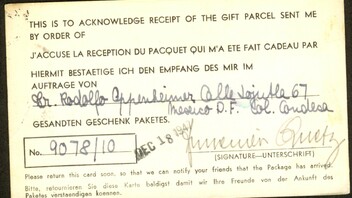 THIS IS TO ACKNOWLEDGE RECEIPT OF THE GIFT PARCEL SENT ME
BY ORDER OF
J'ACCUSE LA RECEPTION DU PACQUET QUI M'A ETE FAIT CADEAU PAR
HIERMIT BESTAETIGE ICH DEN EMPFANG DES MIR IM
AUFTRAGE VON
Sr. Rodolfo Oppenheimer Calle Tojutla 67
Mexico D.F. Col. Condesa
GESANDTEN GESCHENK PAKETES.
No. 9078/10
DEC 18
(SIGNATURE—UNTERSCHRIFT)
Please return this card soon, so that we can notify your friends that the Package has arrived.
Bitte, retournieren Sie diese Karte baldigst damit wir Ihre Freunde von der Ankunft des
Paketes verstaendigen koennen.